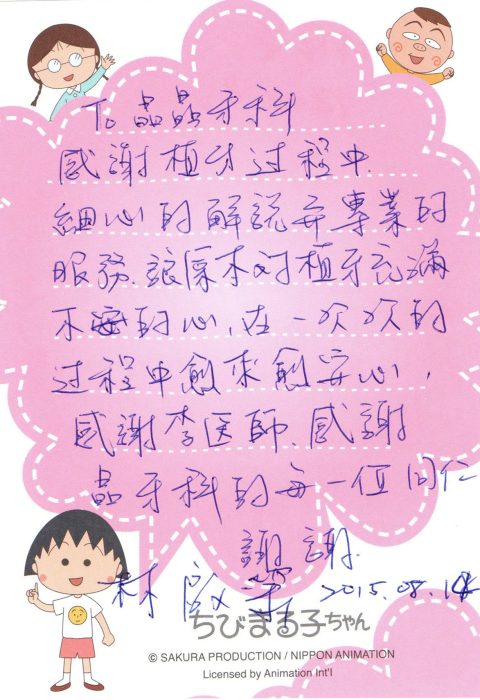 To 晶晶牙科
感謝植牙过程中
細心的解說及專業的
服務、讓原本对植牙充滿
不安的心,在一次次的
过程中愈來愈安心,
感謝李医師、感謝
晶牙科的每一位同仁
謝謝.
林 2015.08.14
ちびまる子ちゃん
© SAKURA PRODUCTION / NIPPON ANIMATION
Licensed by Animation Int'l